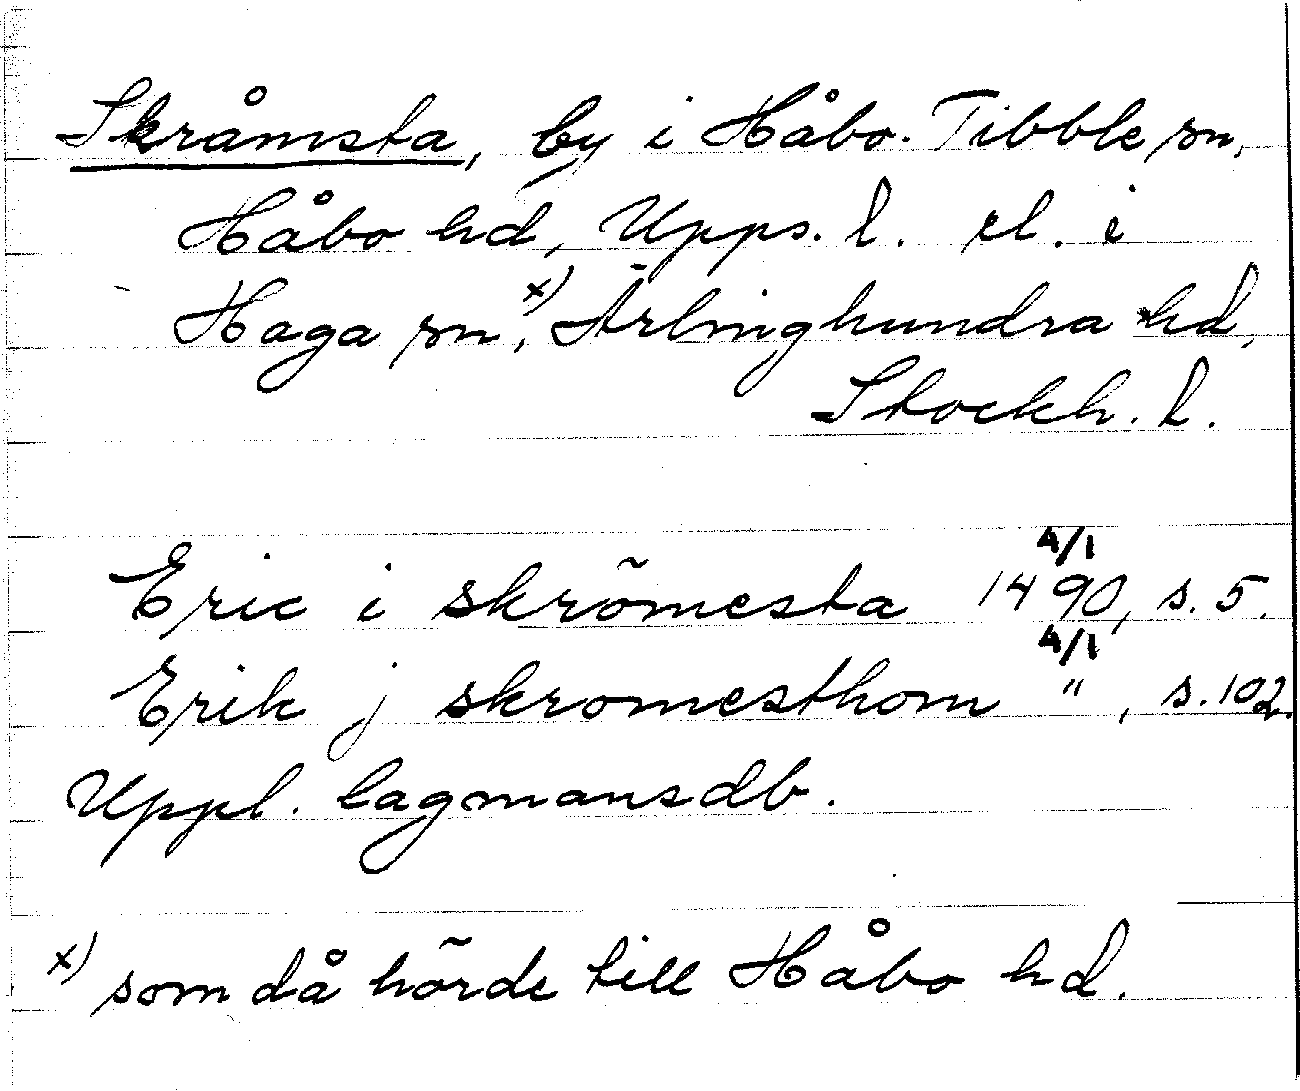 Skråmsta, by i Håbo-Tibble sn,
Håbo hd, Upps. l. el. i
Haga sn, x) Ärlinghundra hd,
Stockh. l.
Eric i skrömesta 4/1 1490, s. 5.
Erik j skromesthom 4/1 ", s. 102.
Uppl. lagmansdb.
x) som då hörde till Håbo hd.